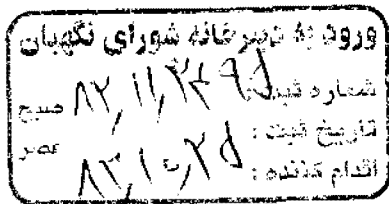 ورود به دبیرخانه شورای نگهبان
شماره ثبت: صبح
تاریخ ثبت: ۸۳,۱۰,۲۵ عصر
اقدام کننده: